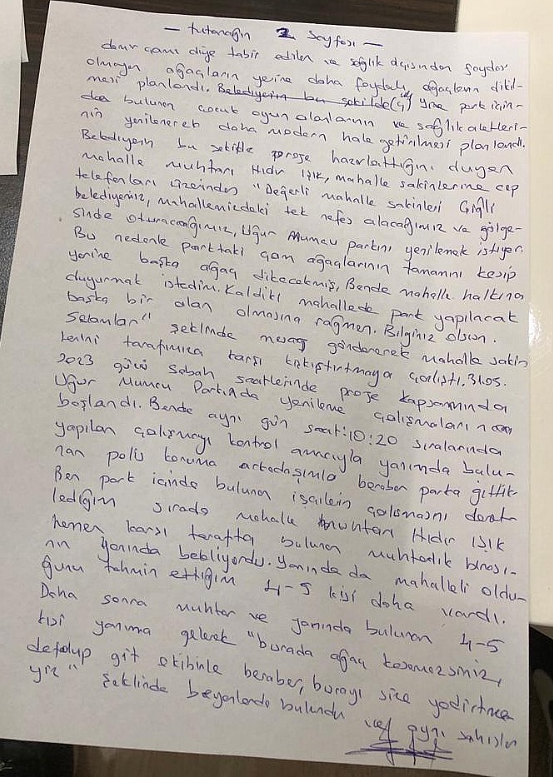 — tutanağın 2. sayfası —
demir çamı diye tabir edilen ve sağlık açısından faydası
olmayan ağaçların yerine daha faydalı ağaçların dikil-
mesi planlandı. Belediyenin bu şekilde Yine park için-
de bulunan çocuk oyun alanlarının ve sağlık aletleri-
nin yenilenerek daha modern hale getirilmesi planlandı.
Belediyenin bu şekilde proje hazırlattığını duyan
mahalle muhtarı Hıdır Işık, mahalle sakinlerine cep
telefonları üzerinden "Değerli mahalle sakinleri Çiğli
belediyemiz, mahallemizdeki tek nefes alacağımız ve gölge-
sinde oturacağımız, Uğur Mumcu parkını yenilemek istiyor.
Bu nedenle parktaki çam ağaçlarının tamamını kesip
yerine başka ağaç dikecekmiş, Bende mahalle halkına
duyurmak istedim. Kaldıki mahallede park yapılacak
başka bir alan olmasına rağmen. Bilginiz olsun.
Selamlar" şeklinde mesaj göndererek mahalle sakin
lerini tarafımıza karşı kışkıştırtmaya çalıştı. 31.05.
2023 günü sabah saatlerinde proje kapsamında
Uğur Mumcu Parkında yenileme çalışmaları
başlandı. Bende aynı gün saat:10:20 sıralarında
yapılan çalışmayı kontrol amacıyla yanımda bulu-
nan polis koruma arkadaşımla beraber parka gittik
Ben park içinde bulunan işçilerin çalışmasını denet-
lediğim sırada mahalle muhtarı Hıdır IŞIK
hemen karşı tarafta bulunan muhtarlık binası-
nın yanında bekliyordu. Yanında da mahalleli oldu-
ğunu tahmin ettiğim 4-5 kişi daha vardı.
Daha sonra muhtar ve yanında bulunan 4-5
kişi yanıma gelerek "burada ağaç kesemezsiniz,
defolup git ekibinle beraber, burayı size yedirtmee
yiz" şeklinde beyanlarda bulundu ve aynı şahıslar